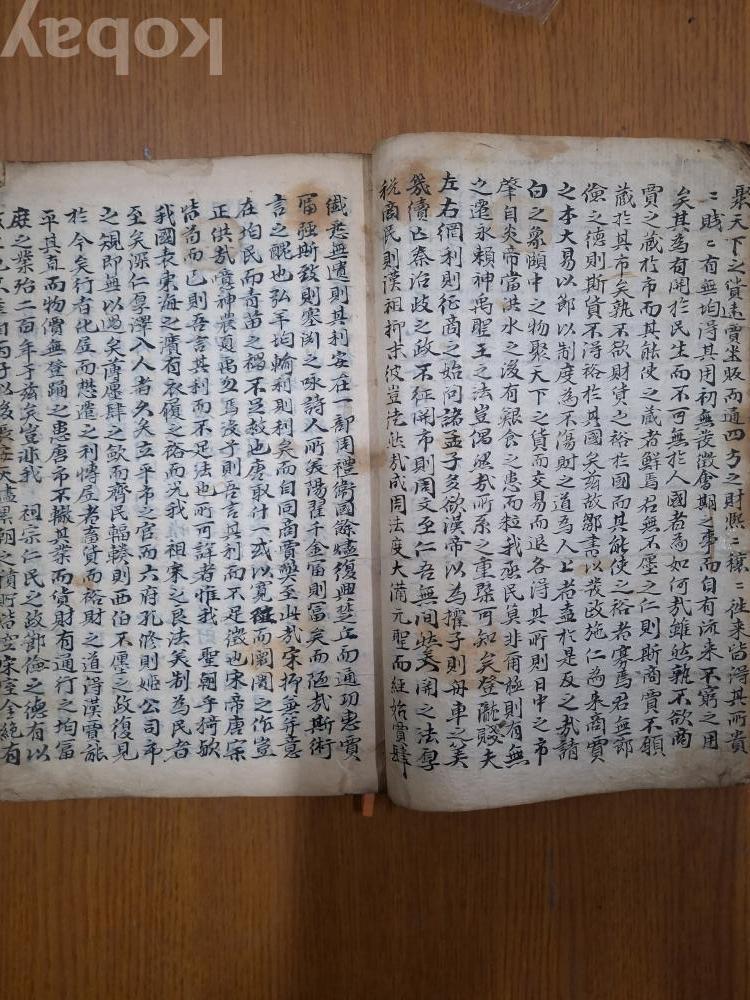 聚天下之貨遠賈坐販而通四方之財熙熙攘攘往来皆得其所貴
賤賤有無均得其用初無發徵會期之事而自有流来不窮之用
矣其為有関於民生而不可無於人國者為如何哉雖然孰不欲商
賈之蔵於市而其能使之蔵者鮮焉君無不廛之仁則斯商賈不願
蔵於其市矣孰不欲財貨之裕於國而其能使之裕者寡焉君無節
儉之德則斯貨不得裕於其國矣玆故鄒書以發政施仁為来商賈
之本大易以節以制度為不傷財之道為人上者盍於是反之哉請
白之象頤中之物聚天下之貨而交易而退各得其所則日中之市
肇自炎帝當洪水之後有艱食之患而粒我烝民莫非爾極則有無
之遷永賴神禹聖王之法豈偶然哉所系之重槩可知矣登隴賤夫
左右網利則征商之始問諸孟子多欲漢帝以為擢子則舟車之筭
幾續亡秦治歧之政不征関市則周文至仁吾無間然美関之法厚
税商民則漢祖抑末彼豈先些哉成周法度大備元聖而経始賈肆
無遺則其利安在一部周禮衛國餘燼復興楚丘而通功惠賈
富强斯致則塞渕之咏詩人所美陽翟千金富則富矣而陋哉斯術
言之醜也弘羊均輸利則利矣而自同商賈獘至此哉宋抑兼并意
在均民而青苗之禍不足救也唐取付一或以寛征而闤闠之作豈
正供哉噫神農夏禹勿焉淺子則吾言其利而不足徴也宋帝唐宗
皆苟而已則吾言其利而不足法也所可詳者惟我 聖朝乎猗歟
我國表東海之濱有衣履之裕而况我 祖宗之良法美制為民者
至矣深仁厚澤入人者久矣立平市之官而六府孔修則姬公司市
之䂓即無以過矣薄廛肆之歛而齊民輻輳則西伯不廛之政復見
於今矣行者化居而懋遷之利博居者畜貨而裕財之道得漢賈能
平其直而物價無登踊之患唐市不轍其業而貨財有通行之均富
庭之業殆二百年于玆矣豈非我 祖宗仁民之政節儉之德有以